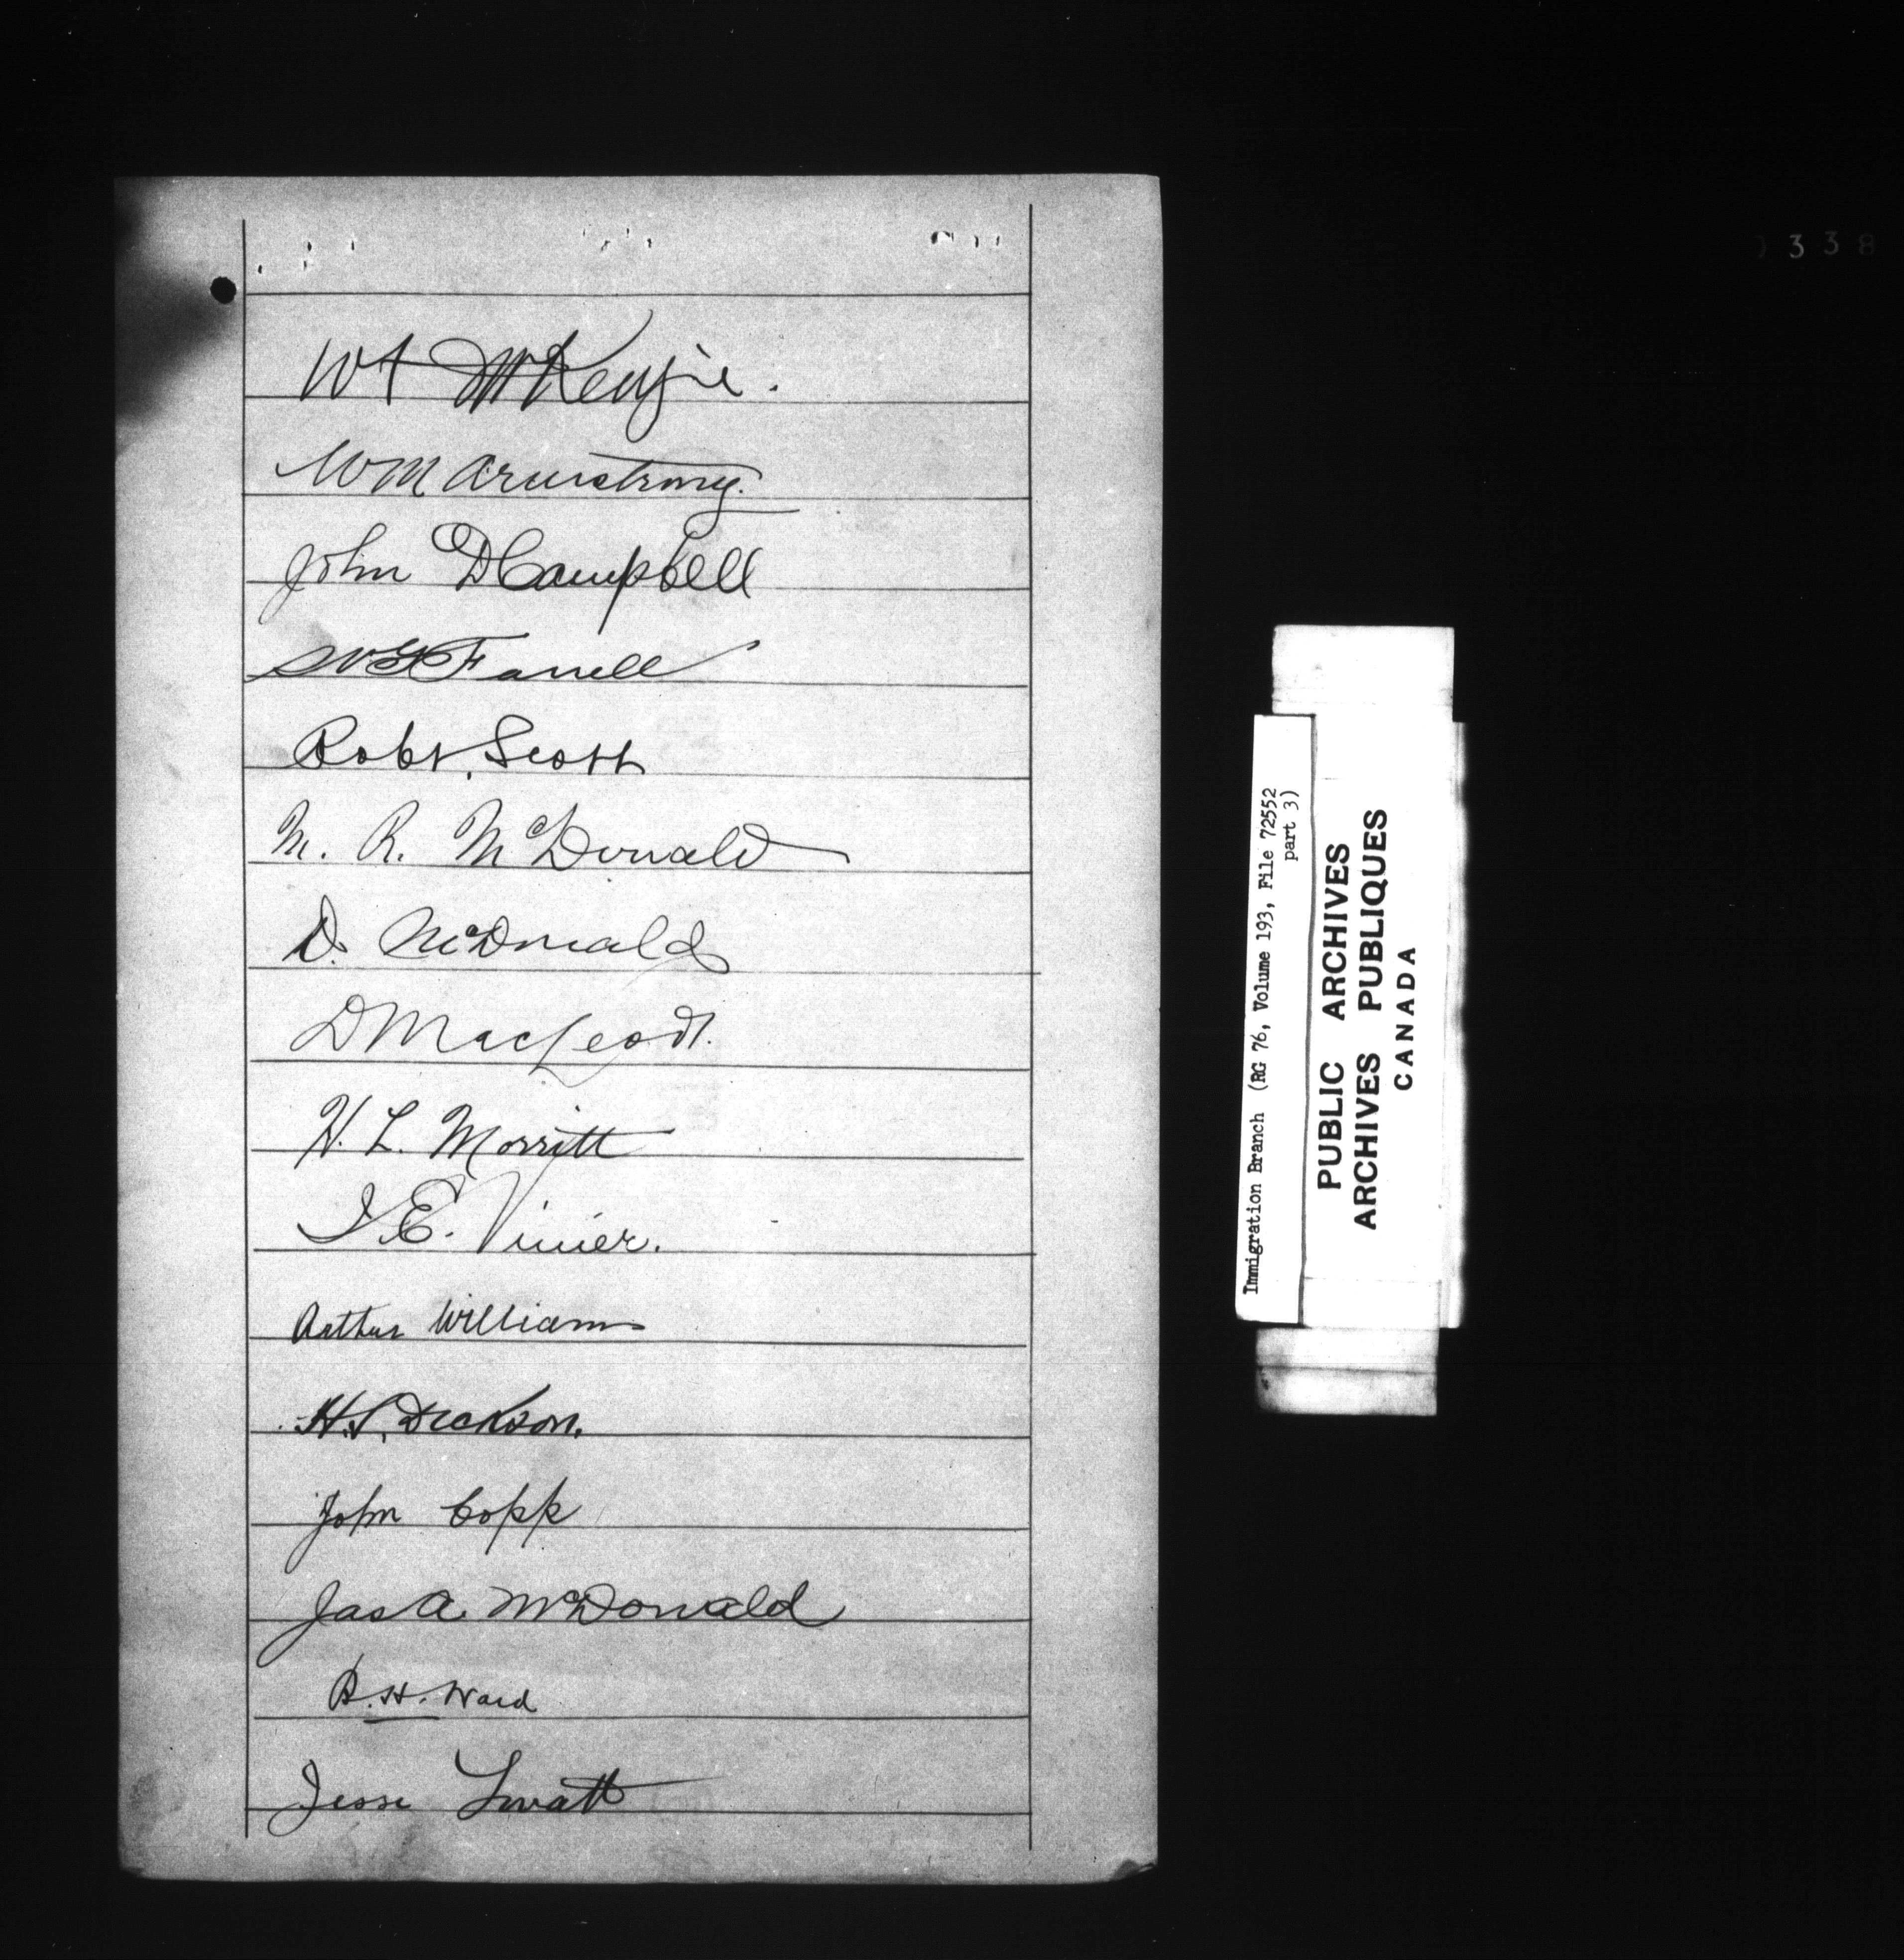 Wt McKenzie.
WM Armstrong.
John D Campbell
Farrell
Robt. Scott
M. R. McDonald
D. McDonald
D MacLeod.
H. L. Morritt
J. E. Vinier.
Arthur Williams
H.S. Dickson.
John Copp
Jas A. McDonald
B. H. Ward
Jesse
338
Immigration Branch (RG 76, Volume 193, File 72552
part 3)
PUBLIC ARCHIVES
ARCHIVES PUBLIQUES
CANADA